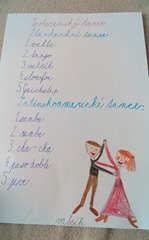 Společenský tanec
Standardní tance:
1. waltz
2. tango
3. valčík
4. slowfox
5. quickstep
Latinskoamerické tance:
1. samba
2. rumba
3. cha-cha
4. paso doble
5. jive
valčík